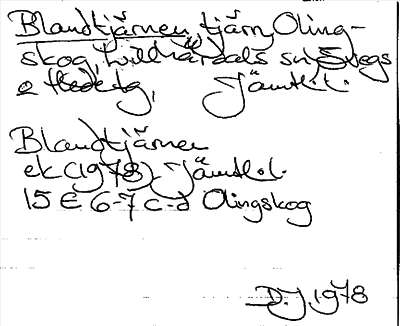 Blandtjärnen, tjärn, Oling-
skog, Lillhärdals sn, Svegs
o Hede tg, Jämtl. l.
Blandtjärnen
ek (1978) Jämtl. l.
15 E 6-7 c-d Olingskog
D.J. 1978